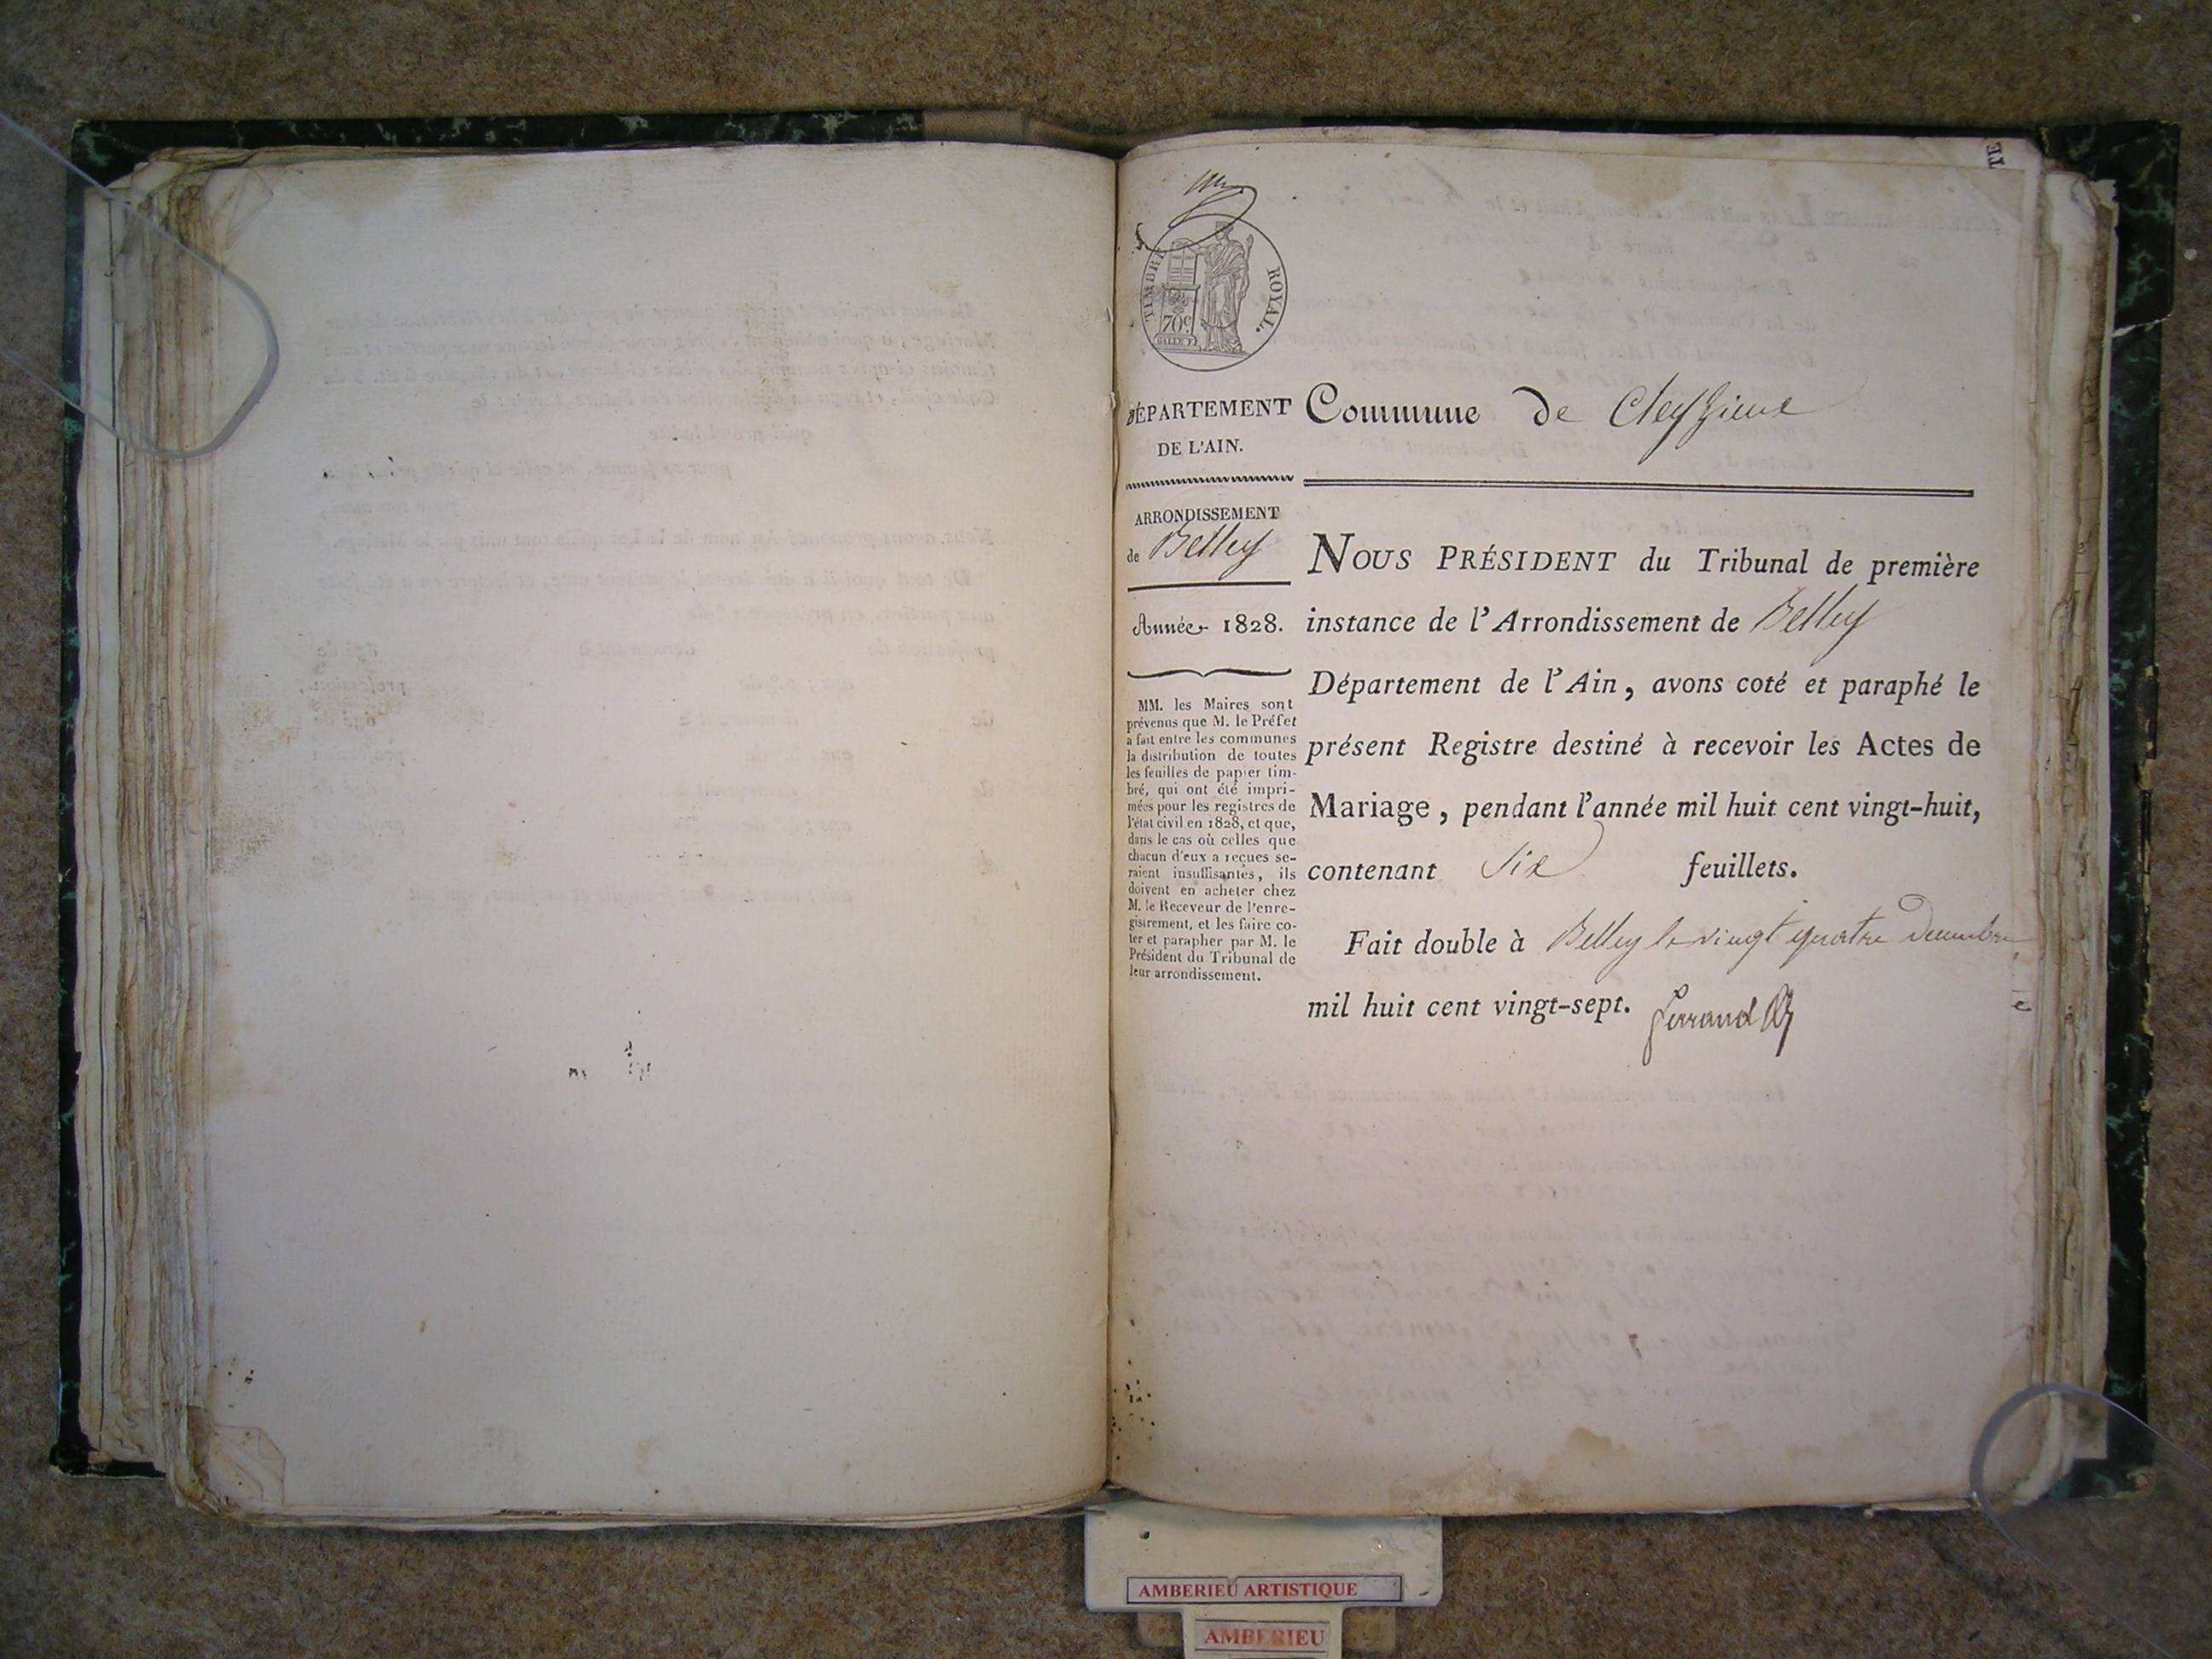 TIMBRE ROYAL.
70c
DÉPARTEMENT
DE L'AIN.
ARRONDISSEMENT
de Belley
Année 1828.
MM. les Maires sont
prévenus que M. le Préfet
a fait entre les communes
la distribution de toutes
les feuilles de papier tim-
bré, qui ont été impri-
mées pour les registres de
l'état civil en 1828, et que,
dans le cas où celles que
chacun d'eux a reçues se-
raient insuffisantes, ils
doivent en acheter chez
M. le Receveur de l'enre-
gistrement, et les faire co-
ter et parapher par M. le
Président du Tribunal de
leur arrondissement.
Commune de Cleyzieux
NOUS PRÉSIDENT du Tribunal de première
instance de l'Arrondissement de Belley
Département de l'Ain, avons coté et paraphé le
présent Registre destiné à recevoir les Actes de
Mariage, pendant l'année mil huit cent vingt-huit,
contenant Six feuillets.
Fait double à Belley le vingt quatre Decembre
mil huit cent vingt-sept.
TE
AMBERIEU ARTISTIQUE
AMBERIEU